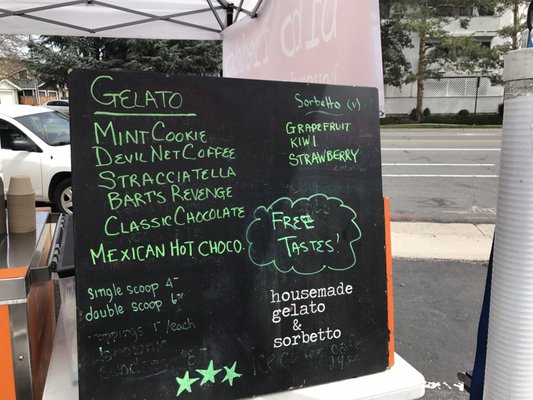 GELATO
MINT COOKIE
DEVIL NET COFFEE
STRACCIATELLA
BART'S REVENGE
CLASSIC CHOCOLATE
MEXICAN HOT CHOCO.
single scoop 4-
double scoop 6-
toppings 1-/each
Sorbetto (v)
GRAPEFRUIT
KIWI
STRAWBERRY
FREE
TASTES!
housemade
gelato
&
sorbetto